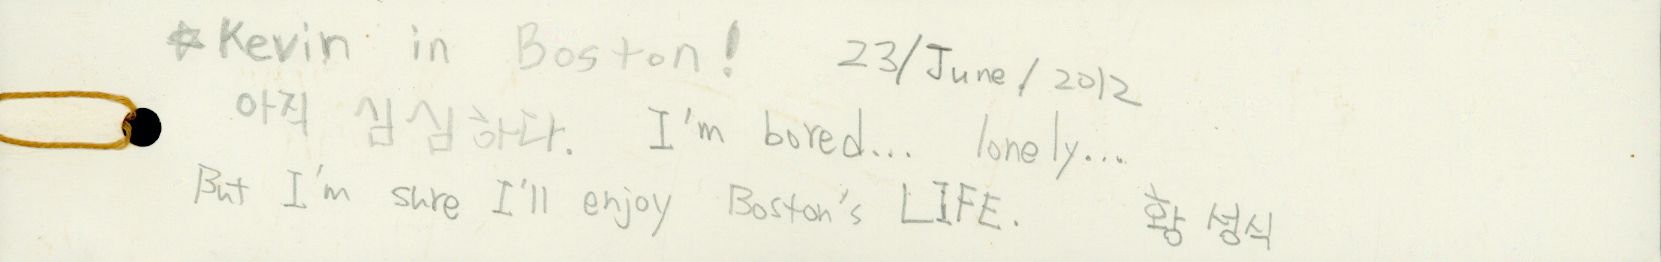 ☆Kevin in Boston! 23/June/2012
아직 심심하다. I'm bored... lonely...
But I'm sure I'll enjoy Boston's LIFE. 황성식